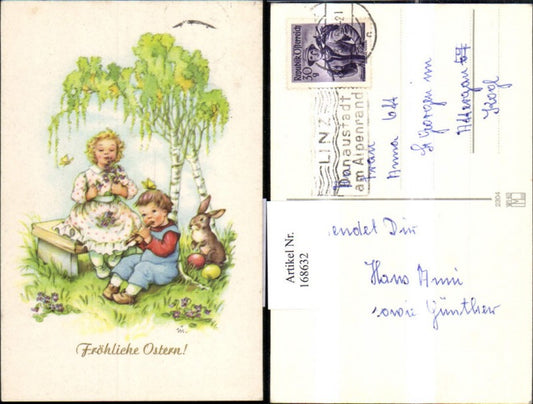 Fröhliche Ostern!
Republik Österreich
LINZ
Donaustadt
am Alpenrand
Frau
Anna Ott
St. Georgen im
Attergau
Kogl
2304
Artikel Nr.
168632
endet Dir
Hans Anni
sowie Günther